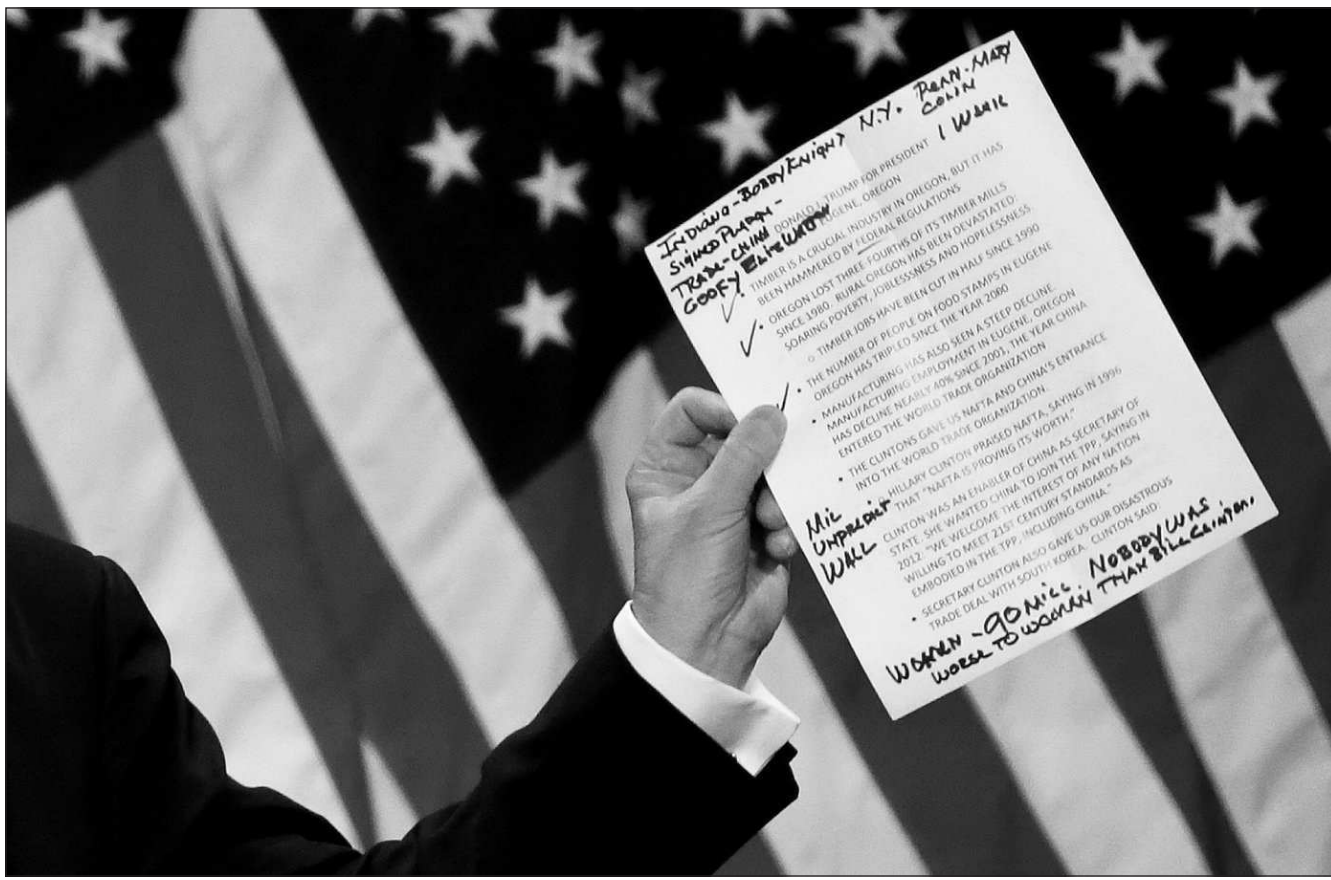 INDIANA-BOBBY KNIGHT N.Y. PENN-MARY
COLIN
SIGNED
TRADE-CHINA
GOOFY
1 WEEK
DONALD J. TRUMP FOR PRESIDENT
EUGENE, OREGON
• TIMBER IS A CRUCIAL INDUSTRY IN OREGON, BUT IT HAS
BEEN HAMMERED BY FEDERAL REGULATIONS
• OREGON LOST THREE-FOURTHS OF ITS TIMBER MILLS
SINCE 1980. RURAL OREGON HAS BEEN DEVASTATED:
SOARING POVERTY, JOBLESSNESS AND HOPELESSNESS
○ TIMBER JOBS HAVE BEEN CUT IN HALF SINCE 1990
• THE NUMBER OF PEOPLE ON FOOD STAMPS IN EUGENE
OREGON HAS TRIPLED SINCE THE YEAR 2000
• MANUFACTURING HAS ALSO SEEN A STEEP DECLINE.
MANUFACTURING EMPLOYMENT IN EUGENE, OREGON
HAS DECLINE NEARLY 40% SINCE 2001, THE YEAR CHINA
ENTERED THE WORLD TRADE ORGANIZATION
• THE CLINTONS GAVE US NAFTA AND CHINA'S ENTRANCE
INTO THE WORLD TRADE ORGANIZATION
○ HILLARY CLINTON PRAISED NAFTA, SAYING IN 1996
THAT "NAFTA IS PROVING ITS WORTH."
• CLINTON WAS AN ENABLER OF CHINA AS SECRETARY OF
STATE. SHE WANTED CHINA TO JOIN THE TPP, SAYING IN
2012: "WE WELCOME THE INTEREST OF ANY NATION
WILLING TO MEET 21ST CENTURY STANDARDS AS
EMBODIED IN THE TPP, INCLUDING CHINA."
• SECRETARY CLINTON ALSO GAVE US OUR DISASTROUS
TRADE DEAL WITH SOUTH KOREA. CLINTON SAID:
MIL
UNPREDICT
WALL
WOMEN - 90 MILL. NOBODY WAS
WORSE TO WOMEN THAN BILL CLINTON.